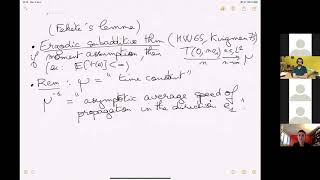 (Fekete's lemma)
• Ergodic subadditive thm (HW65, Kingman
if moment assumption, then T(0, ne₁) a.s, L¹
(ex: E[t(e)] < ∞) n n→∞ μ
• Rem: μ = "time constant"
μ⁻¹ = "asymptotic average speed of
propagation in the direction e₁".